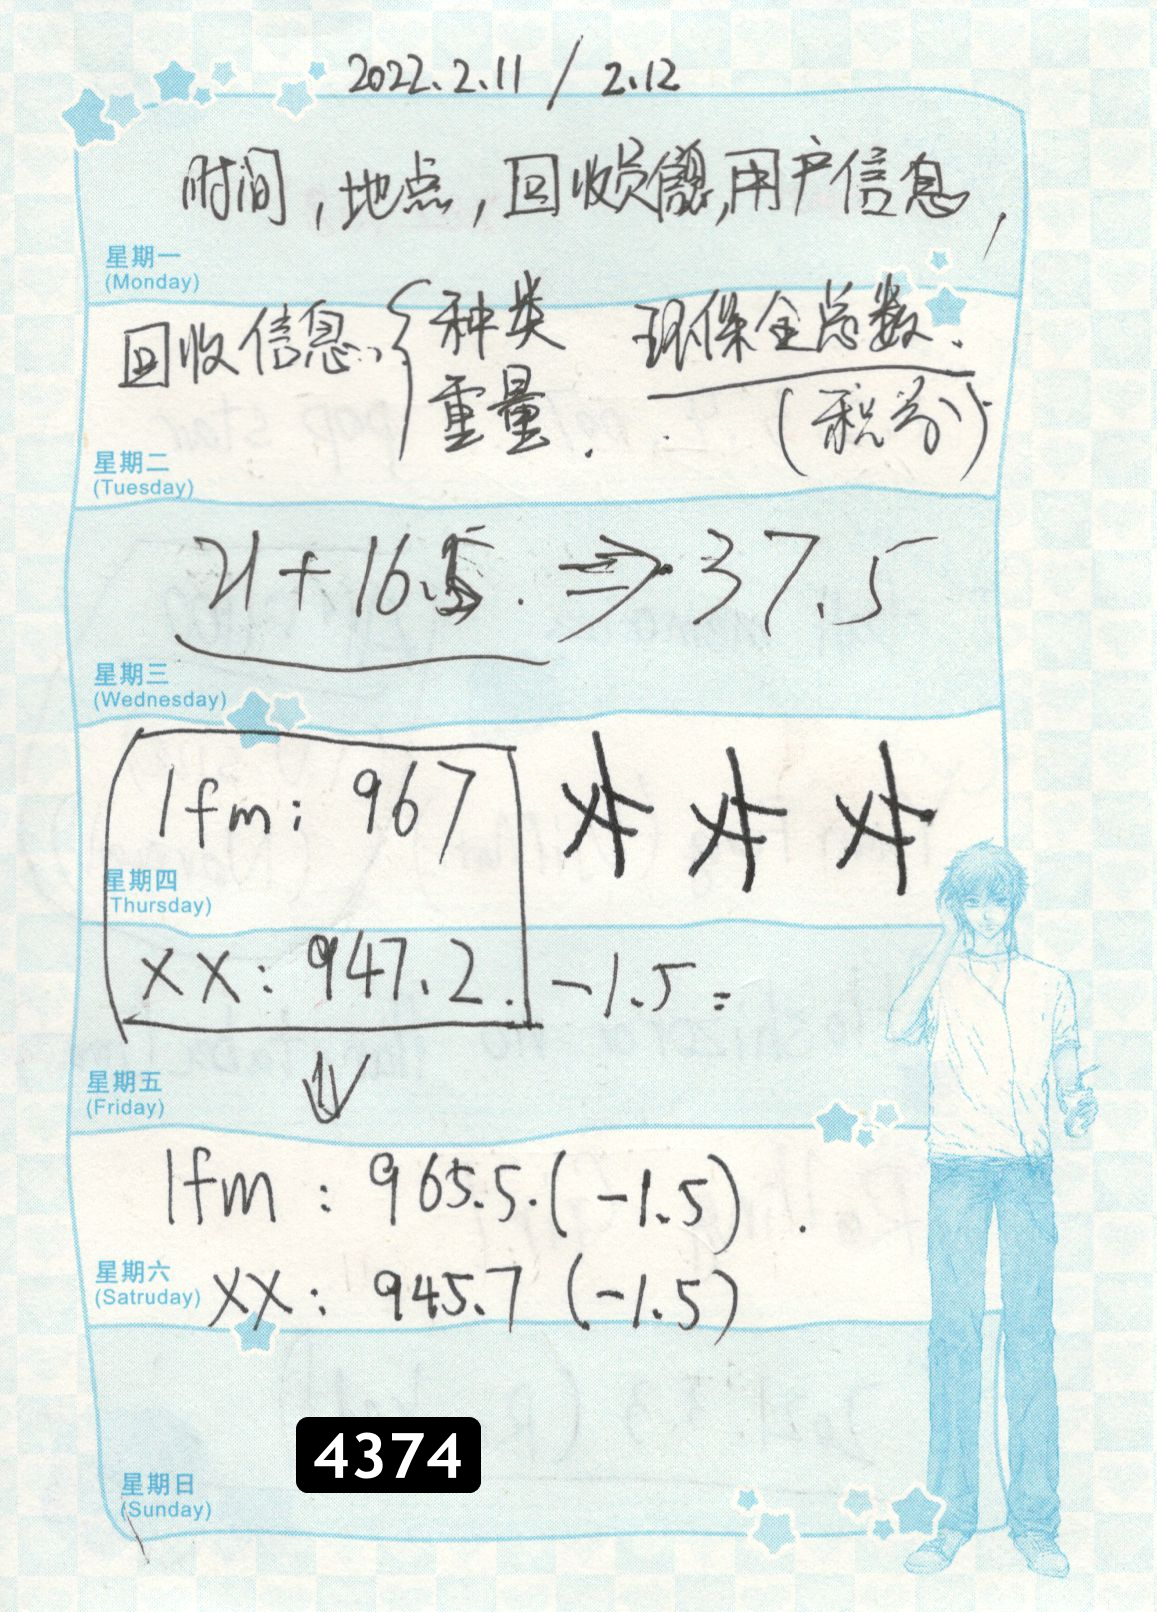 2022.2.11 / 2.12
时间,地点,回收员信息,用户信息,
星期一
(Monday)
回收信息、{种类 环保金总数.
重量. (积分)
星期二
(Tuesday)
21+16.5. ⇒ 37.5
星期三
(Wednesday)
lfm: 967
星期四
(Thursday)
xx: 947.2. -1.5=
星期五
(Friday)
lfm: 965.5.(-1.5).
星期六
(Satruday)
xx: 945.7 (-1.5)
4374
星期日
(Sunday)